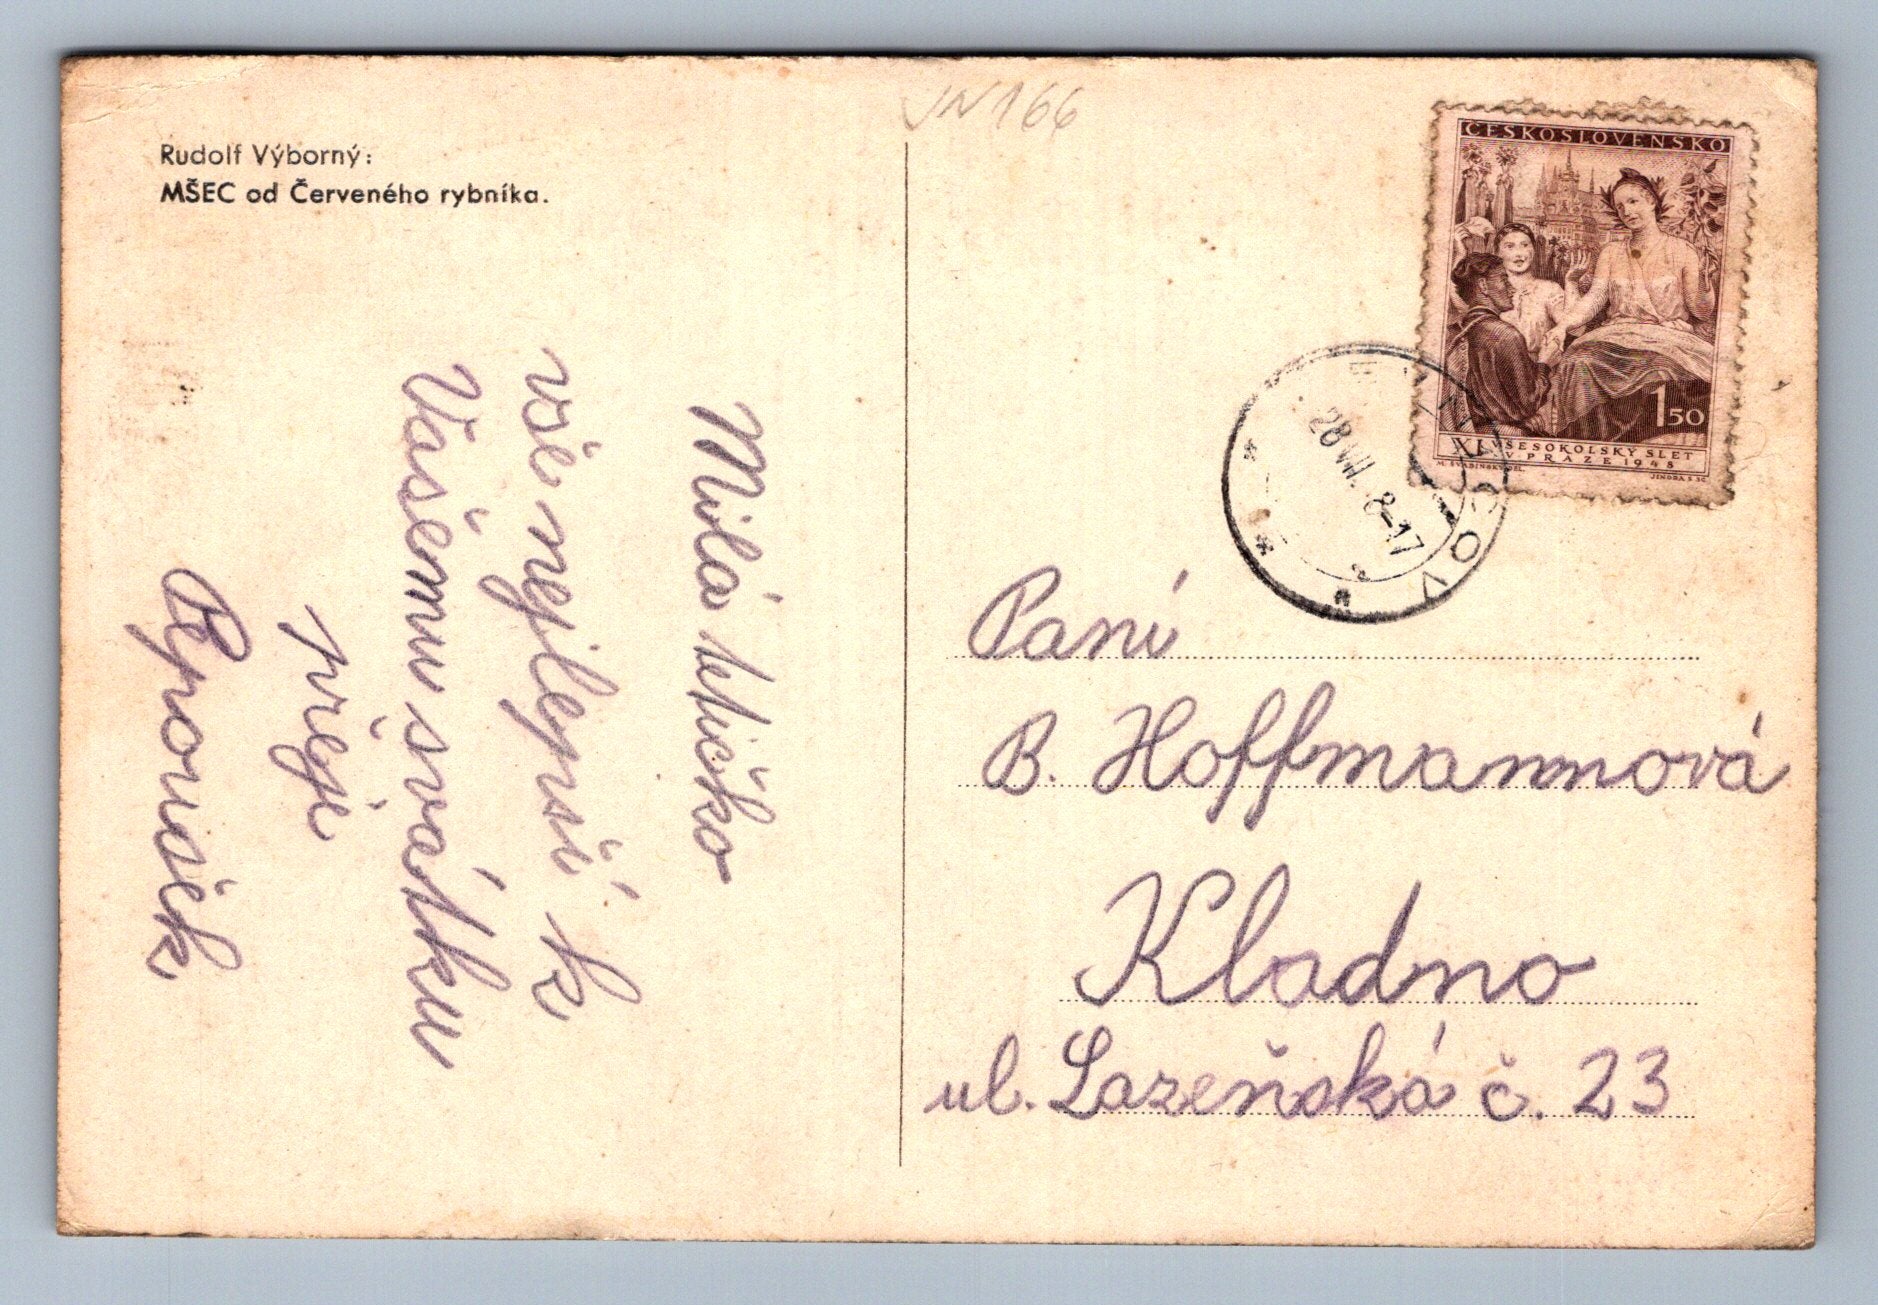 JN166
Rudolf Výborný:
MŠEC od Červeného rybníka.
Milá tetičko
vše nejlepší k
Vašemu svátku
přeje
ČESKOSLOVENSKO
1 50
XI. VŠESOKOLSKÝ SLET
V PRAZE 1948
M. ŠVABINSKÝ DEL.
JINDRA S. SC.
28 VII. 8-17
Paní
B. Hoffmannová
Kladno
ul. Lazeňská č. 23